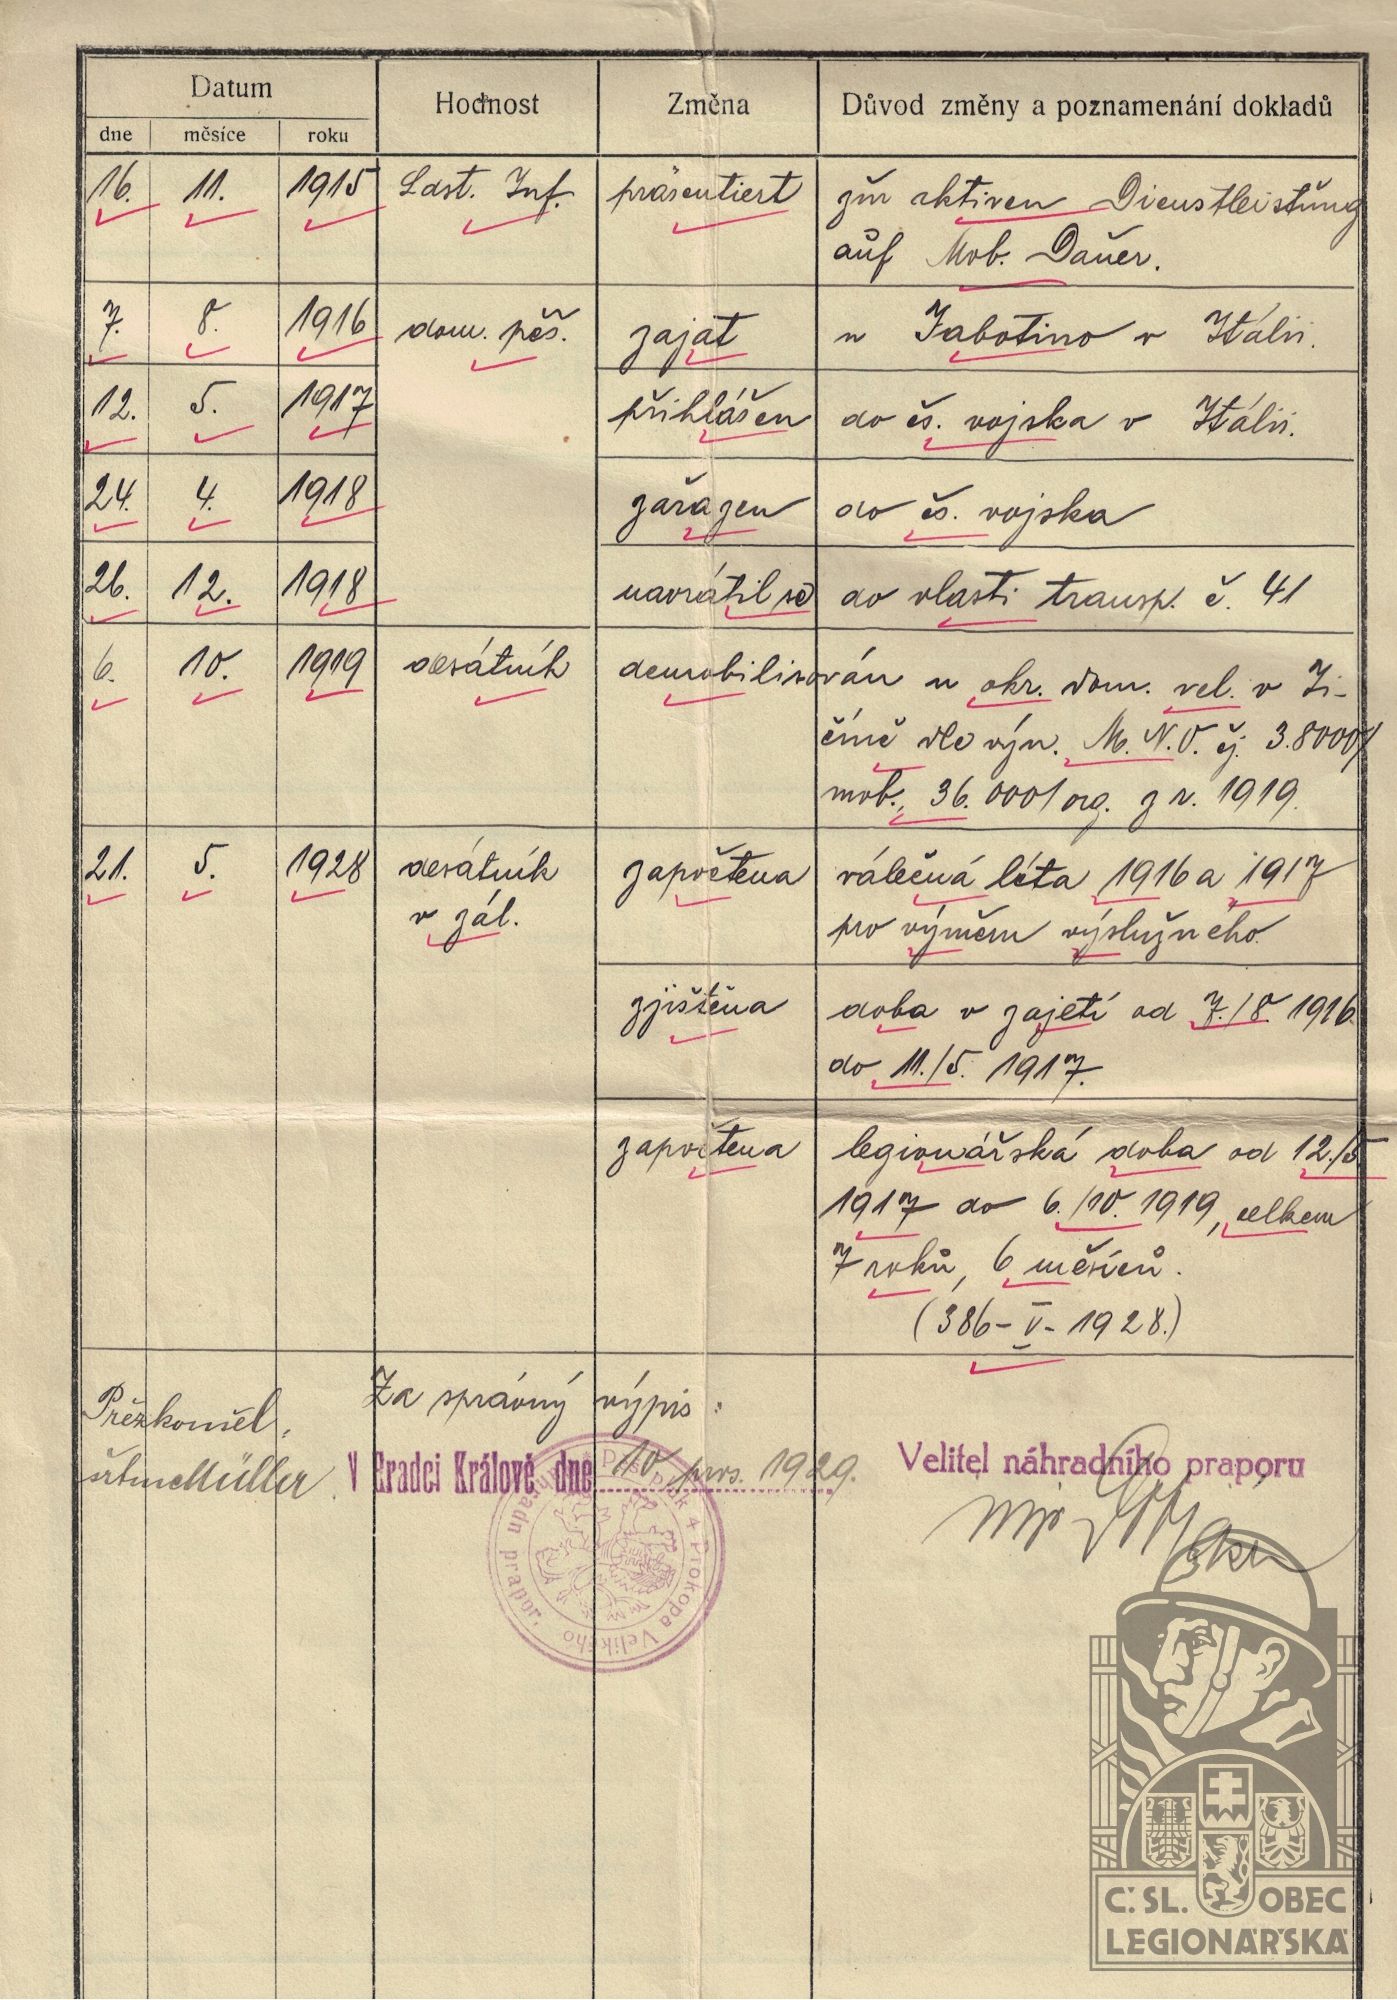 Datum Hodnost Změna Důvod změny a poznamenání dokladů
dne měsíce roku
16. 11. 1915 Ldst. Inf. präsentiert zur aktiven Dienstleistung
auf Mob. Dauer.
7. 8. 1916 dom. pěš. zajat u Jabotino v Itálii.
12. 5. 1917 přihlášen do čs. vojska v Itálii.
24. 4. 1918 zařazen do čs. vojska
26. 12. 1918 navrátil se do vlasti transp. č. 41
6. 10. 1919 desátník demobilisován u okr. dom. vel. v Ji-
číně dle výn. M.N.O. čj. 3.8000/
mob., 36.000/org. z r. 1919.
21. 5. 1928 desátník započtena válečná léta 1916 a 1917
v zál. pro výměru výslužného.
zjištěna doba v zajetí od 7./8. 1916
do 11./5. 1917.
započtena legionářská doba od 12./5.
1917 do 6./10. 1919, celkem
7 roků, 6 měsíců.
(386-V-1928.)
Za správný výpis:
Přezkoušel:
Müller
V Hradci Králové dne 10 pros. 1929.
Velitel náhradního praporu
mjr
Pěší pluk 4 Prokopa Velikého
náhradní prapor.
Č.SL. OBEC
LEGIONÁŘSKÁ